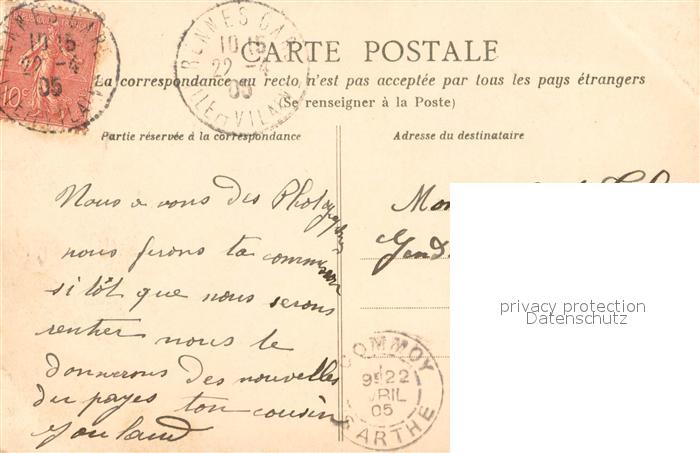 CARTE POSTALE
La correspondance au recto n'est pas acceptée par tous les pays étrangers
(Se renseigner à la Poste)
Partie réservée à la correspondance
Adresse du destinataire
RENNES GARE
10 15
22 - 4
05
ILLE ET VILAINE
10c
Nous avons des
nous ferons ta
si tôt que nous serons
rentrer nous te
donnerons des nouvelles
du payes ton cousin
Mon
Gend
COMMOY
22
AVRIL
05
SARTHE
privacy protection
Datenschutz